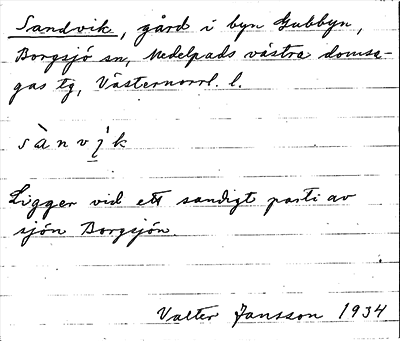 Sandvik, gård i byn Gubbyn,
Borgsjö sn, Medelpads västra domsa-
gas tg, Västernorrl. l.
sànvi̱k
Ligger vid ett sandigt parti av
sjön Borgsjön.
Valter Jansson 1934